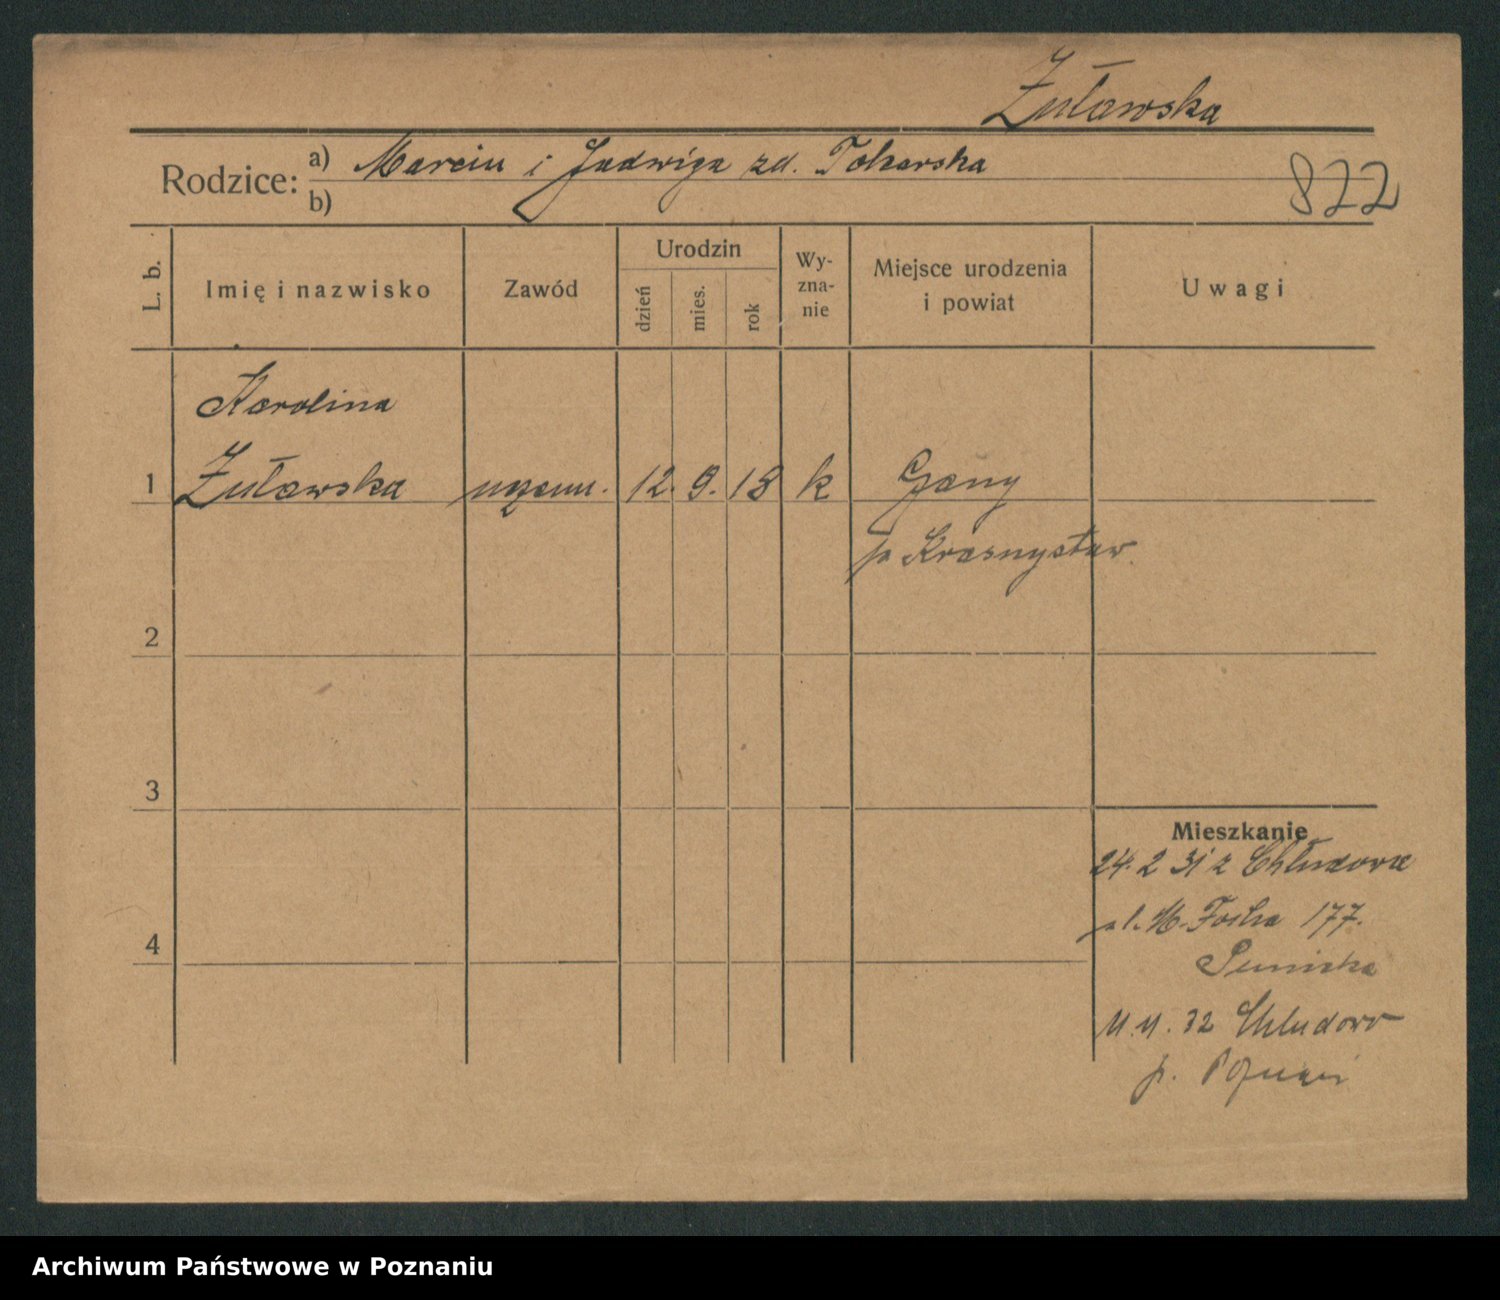 Żuławska
Rodzice: a) Marcin i Jadwiga zd. Tokarska
b)
822
L. b. Imię i nazwisko Zawód Urodzin dzień mies. rok Wy-zna-nie Miejsce urodzenia i powiat Uwagi
Karolina
1 Żuławska uczenn. 12. 9. 18 k Gany
p. Krasnystaw.
2
3
Mieszkanie
24. 2 31 z Chludowa
ul. M. Focha 177.
4
11. 11. 32 Chludowo
p. Poznań
Archiwum Państwowe w Poznaniu